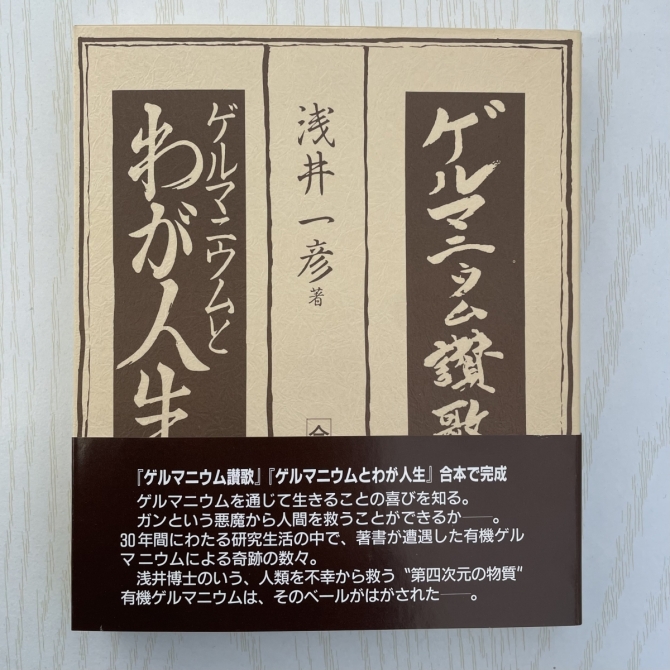 ゲルマニウム讃歌
浅井一彦著
ゲルマニウムと
わが人生
『ゲルマニウム讃歌』『ゲルマニウムとわが人生』合本で完成
ゲルマニウムを通じて生きることの喜びを知る。
ガンという悪魔から人間を救うことができるか――。
30年間にわたる研究生活の中で、著書が遭遇した有機ゲル
マニウムによる奇跡の数々。
浅井博士のいう、人類を不幸から救う〝第四次元の物質〟
有機ゲルマニウムは、そのベールがはがされた――。